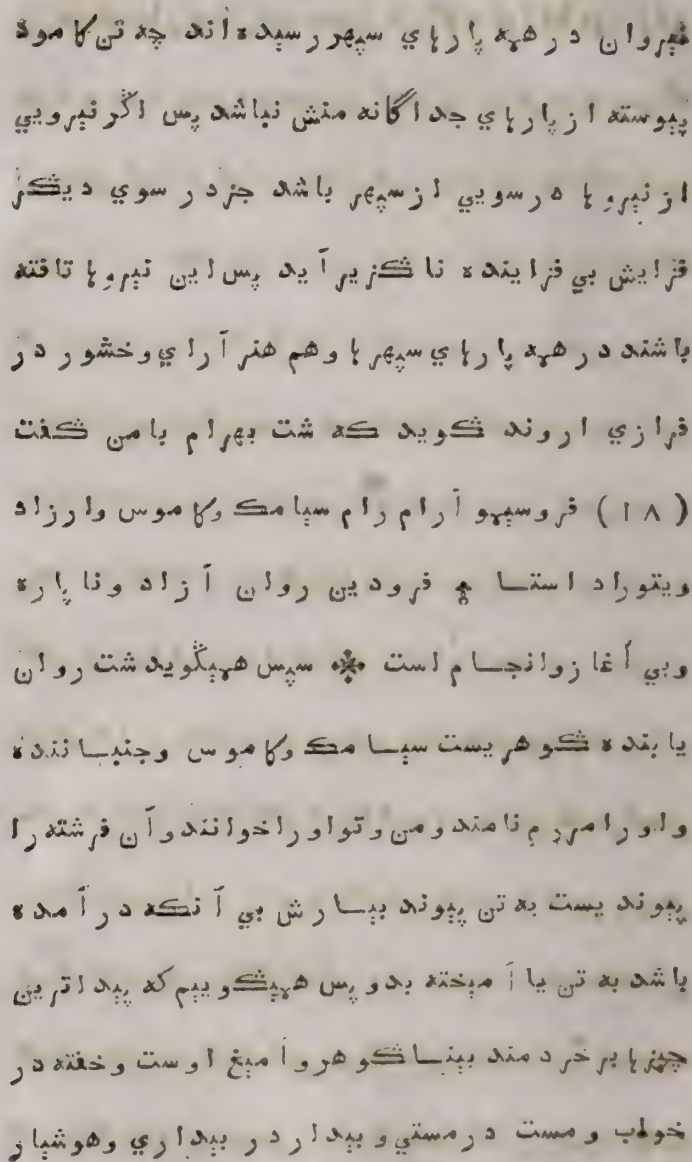 نیروان در همه پارهاي سپهر رسیده‌اند چه تن کامود
پیوسته از پارهاي جداگانه منش نباشد پس اگر نیرویي
از نیروها درسویي از سپهر باشد جز در سوي دیگر
فزایش بي فزاینده ناگزیر آید پس این نیروها تافته
باشند در همه پارهاي سپهرها وهم هنر آراي وخشور در
فرازي اروند گوید که شت بهرام بامن گفت
( ۱۸ ) فروسیهو آرام رام سیامک وکاموس وارزاد
ویتوراد استا * فرودین روان آزاد وناپاره
وبي آغاز وانجام است * سپس همیگوید شت روان
یابنده گوهریست سیامک وکاموس وجنبساننده
واورا مردم نامند ومن وتواورا خوانند وآن فرشته را
پیوندیست به تن پیوند بیارش بي آنکه درآمده
باشد به تن یا آمیخته بدو پس همیگوییم که پیداترین
چیزها برخردمند بیناگوهر وآمیغ اوست وخفته در
خواب ومست درمستي وبیدار در بیداري وهوشیار